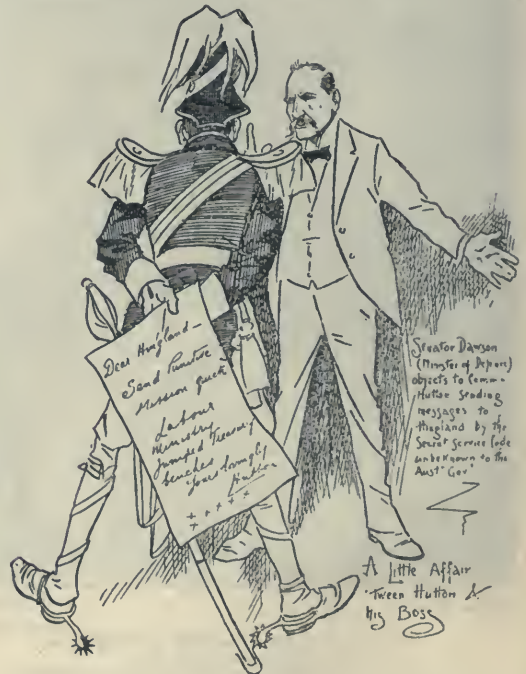 Dear Hingland —
Send Punitive
Mission quick
Labour
Ministry
jumped Treasury
benches
yours lovingly
Hutton
+ + + + + +
Senator Dawson
(Minister of Defence)
objects to Comm-
Hutton sending
messages to
Hingland by the
Secret Service Code
unbeknown to the
Aust Gov'
A Little Affair
'Tween Hutton &
his Boss